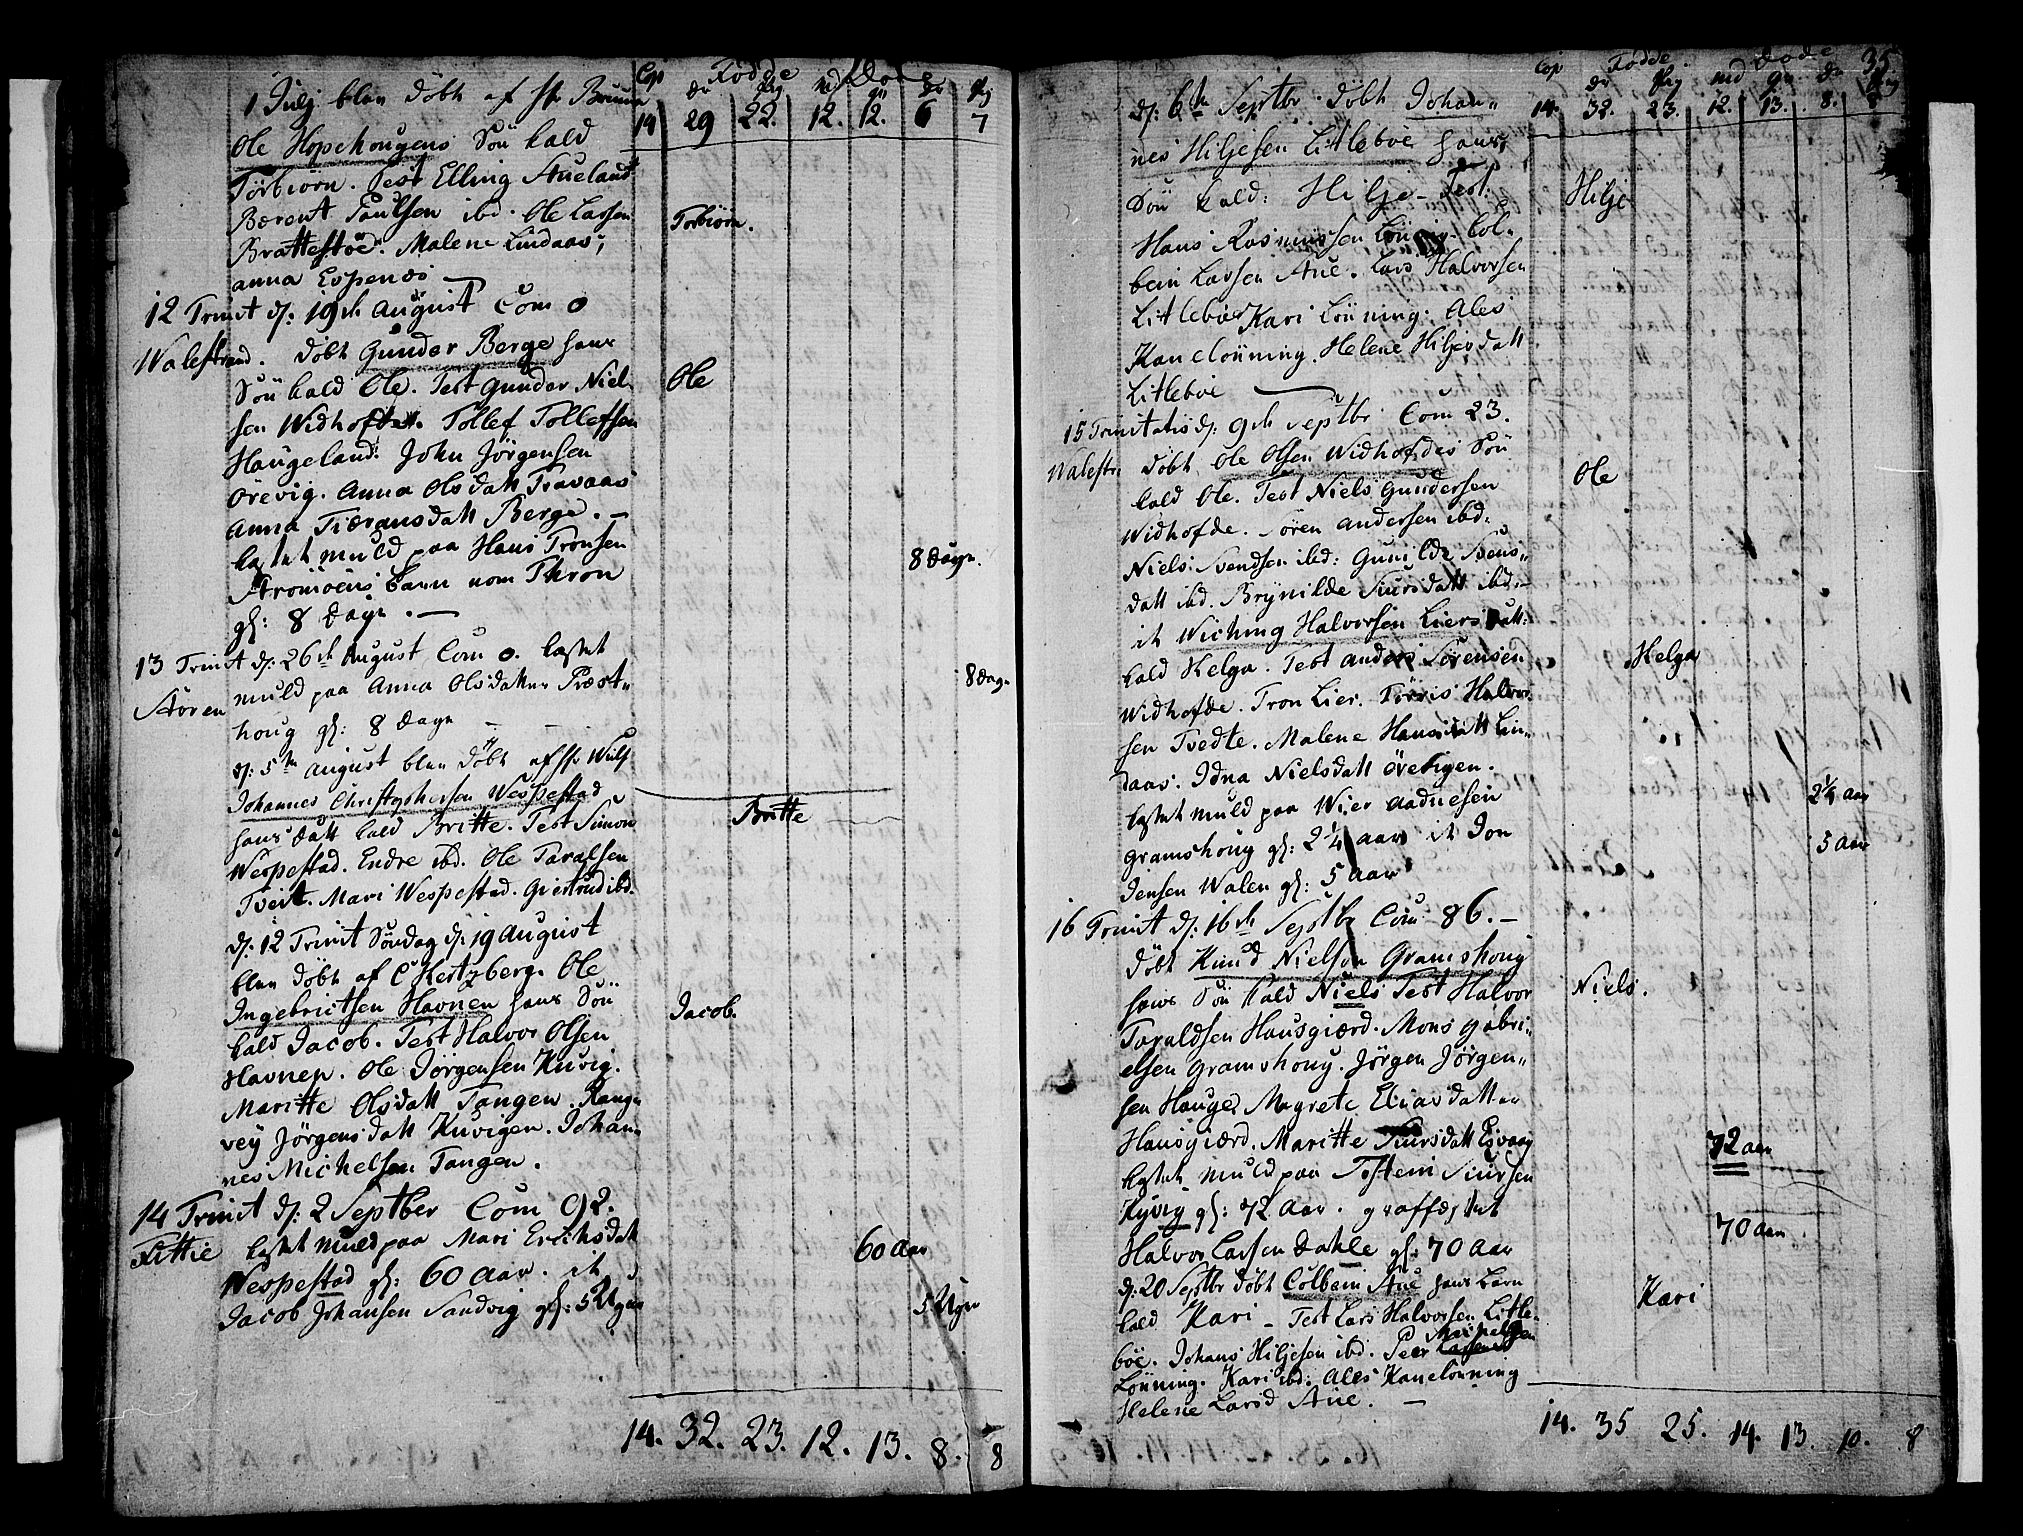 Cop Fødde Døde
dr pig md qu dr pig
14 29 22. 12. 12. 6 7
1 Julj blev døbt af Hr Bruun
Ole Hopehougens Søn kald
Torbiørn. Test Elling Aueland
Bærent Paulsen ibd. Ole Larsen
Torbiørn.
Brattestöe. Malene Lindaas,
anna Espenes
12 Trinit d: 19de August Com 0
Walestrand. døbt Gunder Berge hans
Søn kald Ole. Test gunder Niel
Ole
sen Widhofde. Tollef Tollefsen
Haugeland. John Jörgensen
Örevig. Anna Olsdatt Travaas
Anna Tiæransdatt Berge. —
kastet muld paa Hans Tronsen
8 dage.
Strömöens barn nom Thron
gl: 8 dage. —
13 Trinit d: 26de August Com 0. kastet
Støren muld paa Anna Olsdatter Præst„
8 dage
houg gl: 8 dage
d: 5te August blev døbt af Hr Wulf
Johannes Christophersen Wespestad
Britte
hans datt kald Britte. Test Simon
Wespestad. Endre ibd. Ole Taralsen
Tveit. Mari Wespestad. Giertrud ibd.
d: 12 Trinit Søndag d: 19 August
blev døbt af C Hertzberg. Ole
Ingebrictsen Havnen hans Søn
Jacob.
kald Jacob. Test Halvor Olsen
Havnen. Ole Jörgensen Kuvig.
Maritte Olsdatt Tangen. Rang„
vey Jörgensdatt Kuvigen. Johan„
nes Michelsen Tangen.
14 Trinit d: 2 Septber Com 92.
Fittie kastet muld paa Mari Erichsdatt
60 aar
Wespestad gl: 60 aar. it
Jacob Johansen Sandvig gl: 5 Uger
5 Uger
14. 32. 23. 12. 13. 8. 8
35
Cop Fødde Døde
dr pig md qu dr pig
14. 32. 23. 12. 13. 8. 8
d: 6te Septbr. døbt Johan„
nes Hiljesen Litleböe hans
Søn kald: Hilje — Test:
Hilje
Hans Rasmussen Lönning. Col„
bein Larsen Aue. Lars Halvorsen
Litleböe Kari Lönning. Ales
Kanelönning. Helene Hiljesdatt
Litleböe
15 Trinitatis d: 9de Septbr Com 23.
Walestr. Døbt Ole Olsen Widhofdes Søn
Ole
kald Ole. Test Niels Gundersen
Widhofde. Sören Andersen ibd:
Niels Svendsen ibd: Gunilde Svens„
datt ibd. Brÿnilde Siursdatt ibd:
it Wiching Halvorsen Liers datt:
Helga
kald Helga. Test Anders Sörensen
Widhofde. Tron Lier. Törris Halvor
sen Tvedte. Malene Hansdatt Lin„
daas. Idna Nielsdatt övetigen.
2 1/4 aar
kastet muld paa Wier Aadnesen
Gramshoug gl: 2 1/4 aar it Jon
5 aar
Jensen Walen gl: 5 aar
16 Trinit d: 16de Septbr Com: 86. —
døbt Knud Nielsen Gramshoug
hans Søn kald Niels Test Halvor
Niels.
Taraldsen Hausgiærd. Mons Gabri„
elsen Gramshoug. Jörgen Jörgen„
sen Hauge. Magrete Eliasdatter
Hausgiærd. Maritte Siursdatt Esvaag
72 aar
kastet muld paa Tostein Siursen
Kyvig gl: 72 aar. graffæstet
70 aar
Halvor Larsen Dahle gl: 70 aar
d: 20 Septbr døbt Colbein Aue hans barn
Kari
kald Kari — Test Lars Halvorsen Litle„
böe. Johans Hiljesen ibd. Peer
Lönning. Kari ibd: Ales Kanelönning
Helene Larsd Aue. —
14. 35 25. 14. 13. 10. 8